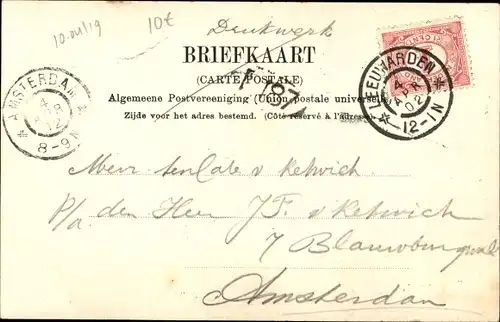 10.041g
10€
Drukwerk
BRIEFKAART
(CARTE POSTALE)
Algemeene Postvereeniging (Union postale universelle)
Zijde voor het adres bestemd. (Côté réservé à l'adresse)
AMSTERDAM
4
APR
02
8-9N
LEEUWARDEN
4
APR
02
12-1N
Mevr tenCate v Ketwich
P/a. den Heer J.F. v Ketwich
7 Blauwburgwal
Amsterdam